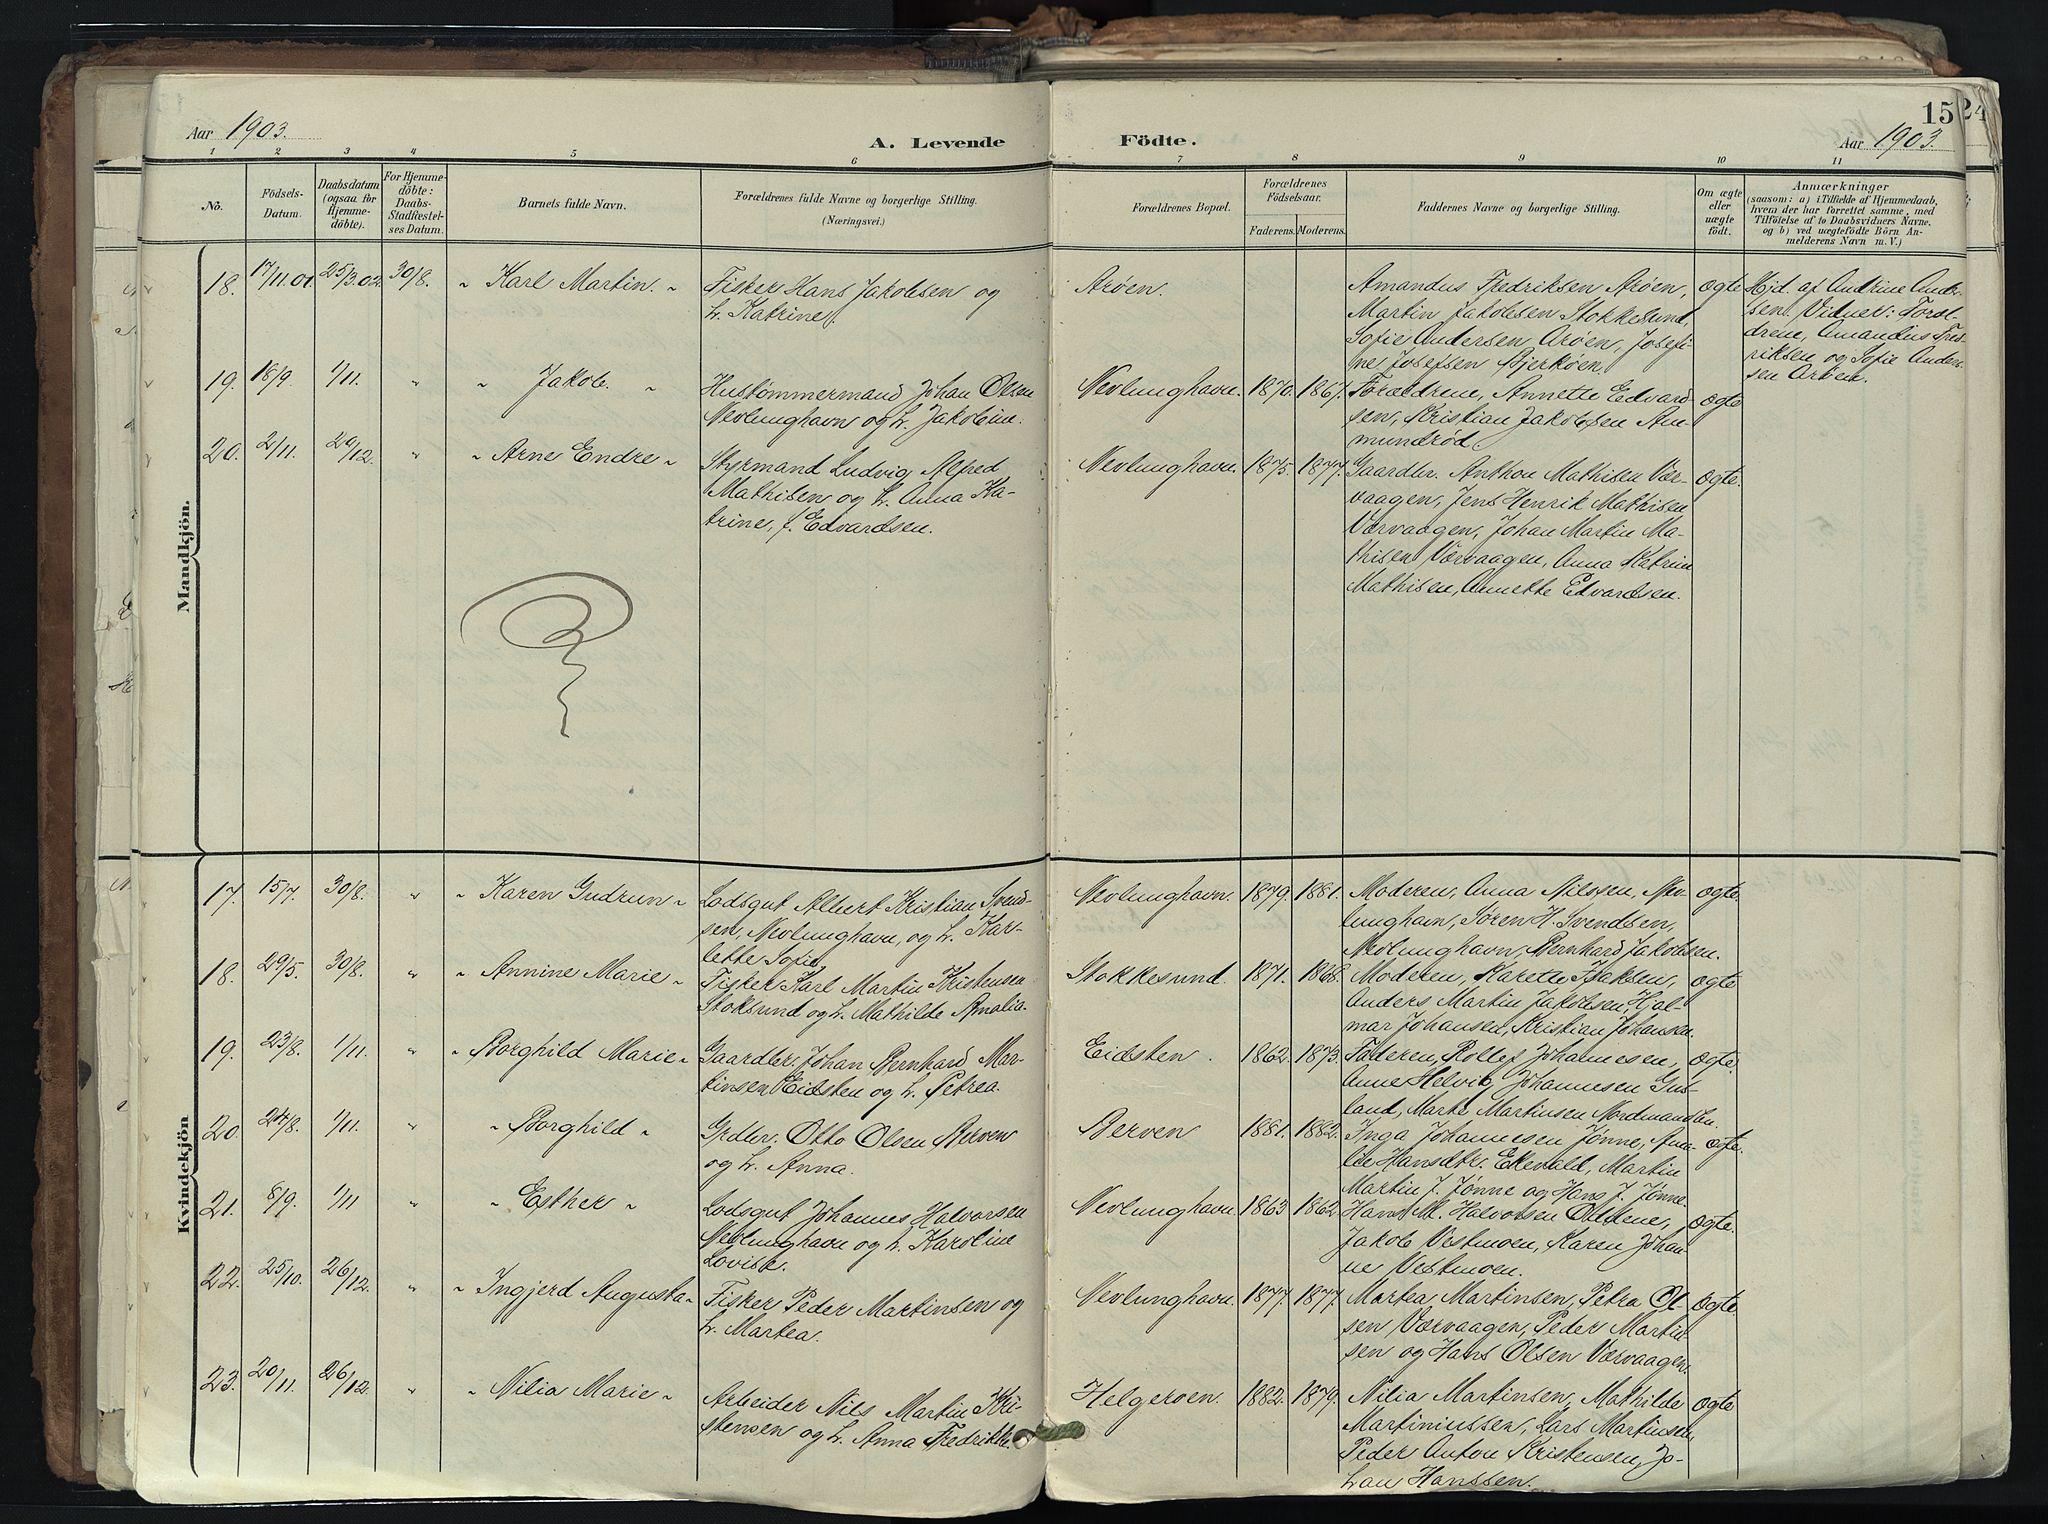 Aar 1903.
A. Levende Födte.
15
24
Aar 1903.
1 2 3 4 5 6 7 8 9 10 11
No.
Födsels-
Datum.
Daabsdatum
(ogsaa for
Hjemme-
döbte).
For Hjemme-
döbte:
Daabs-
Stadfæstel-
ses Datum.
Barnets fulde Navn.
Forældrenes fulde Navne og borgerlige Stilling.
(Næringsvei.)
Forældrenes Bopæl.
Forældrenes
Födselsaar.
Faderens. Moderens.
Faddernes Navne og borgerlige Stilling.
Om ægte
eller
uægte
födt.
Anmærkninger
(saasom: a) i Tilfælde af Hjemmedaab,
hvem der har forrettet samme, med
Tilföielse af to Daabsvidners Navne.
og b) ved uægtefödte Börn An-
melderens Navn m. V.)
Mandkjön.
18. 17/11.01. 25/3.02. 30/8. " Karl Martin. "
Fisker Hans Jakobsen og
h. Katrine.
Arøen.
Amandus Fredriksen Arøen,
Martin Jakobsen Stokkesund,
Sofie Andersen Arøen, Josefi-
ne Josefsen Bjerkøen.
ægte
Hjd. af Andrine Ander-
sen. Vidner: Foræl-
drene, Amandus Fred-
riksen og Sofie Ander-
sen Arøen.
19. 18/9. 1/11. " " Jakob. "
Hustømmermand Johan Olsen
Nevlunghavn og h. Jakobine.
Nevlunghavn. 1870. 1867.
Forældrene, Annette Edvard-
sen, Kristian Jakobsen Am-
mundrød.
ægte
20. 2/11. 29/12. " " Arne Endre "
Styrmand Ludvig Alfred
Mathisen og h. Anna Ka-
trine, f. Edvardsen.
Nevlunghavn. 1875. 1877.
Gaardbr. Anthon Mathisen Vær-
vaagen, Jens Henrik Mathisen
Værvaagen, Johan Martin Ma-
thisen Værvaagen, Anna Katrine
Mathisen, Annette Edvardsen.
ægte.
Kvindekjön
17. 15/7 30/8. " " Karen Gudrun "
Lodsgut Albert Kristian Svend-
sen, Nevlunghavn, og h. Kar-
lette Sofie.
Nevlunghavn. 1879. 1881.
Moderen, Anna Nilssen, Nev-
lunghavn, Søren H. Svendsen,
Nevlunghavn, Bernhard Jakobsen.
ægte.
18. 29/5. 30/8. " " Annine Marie "
Fisker Karl Martin Kristensen
Stoksund og h. Mathilde Amalia.
Stokkesund. 1871. 1868.
Moderen, Karette Isaksen,
Anders Martin Jakobsen, Hjal-
mar Johansen, Kristian Johansen.
ægte
19. 23/8. 1/11. " " Borghild Marie "
Gaardbr. Johan Bernhard Mar-
tinsen Eidsten og h. Petrea.
Eidsten. 1862. 1873.
Faderen, Rollef Johannesen,
Anne Helvig Johannesen Gus-
land, Marte Martinsen Nordmanden.
ægte.
20. 24/8. 1/11. " " Borghild "
Grdbr. Otto Olsen Berven
og h. Anna.
Berven 1881. 1882.
Inga Johannesen Jønne, Ama-
lie Hansdtr. Ekevald, Martin
Martin J. Jønne og Hans J. Jønne.
ægte.
21. 8/9. 1/11 " " Esther "
Lodsgut Johannes Halvorsen
Nevlunghavn og h. Karoline
Lovise.
Nevlunghavn. 1863 1862
Hans M. Halvorsen Oddene,
Jakob Vestmoen, Karen Johan-
ne Vestmoen.
ægte.
22. 25/10. 26/12. " " Ingjerd Augusta "
Fisker Peder Martinsen og
h. Martea.
Nevlunghavn. 1877. 1877.
Martea Martinsen, Petra Ol-
sen Værvaagen, Peder Martin-
sen og Hans Olsen Værvaagen.
ægte.
23. 20/11. 26/12. " " Nilia Marie "
Arbeider Nils Martin Kri-
stensen og h. Anna Fredrikke.
Helgeroen. 1882. 1879.
Nilia Martinsen, Mathilde
Martiniussen, Lars Martinsen,
Peder Anton Kristensen, Jo-
han Hanssen.
ægte